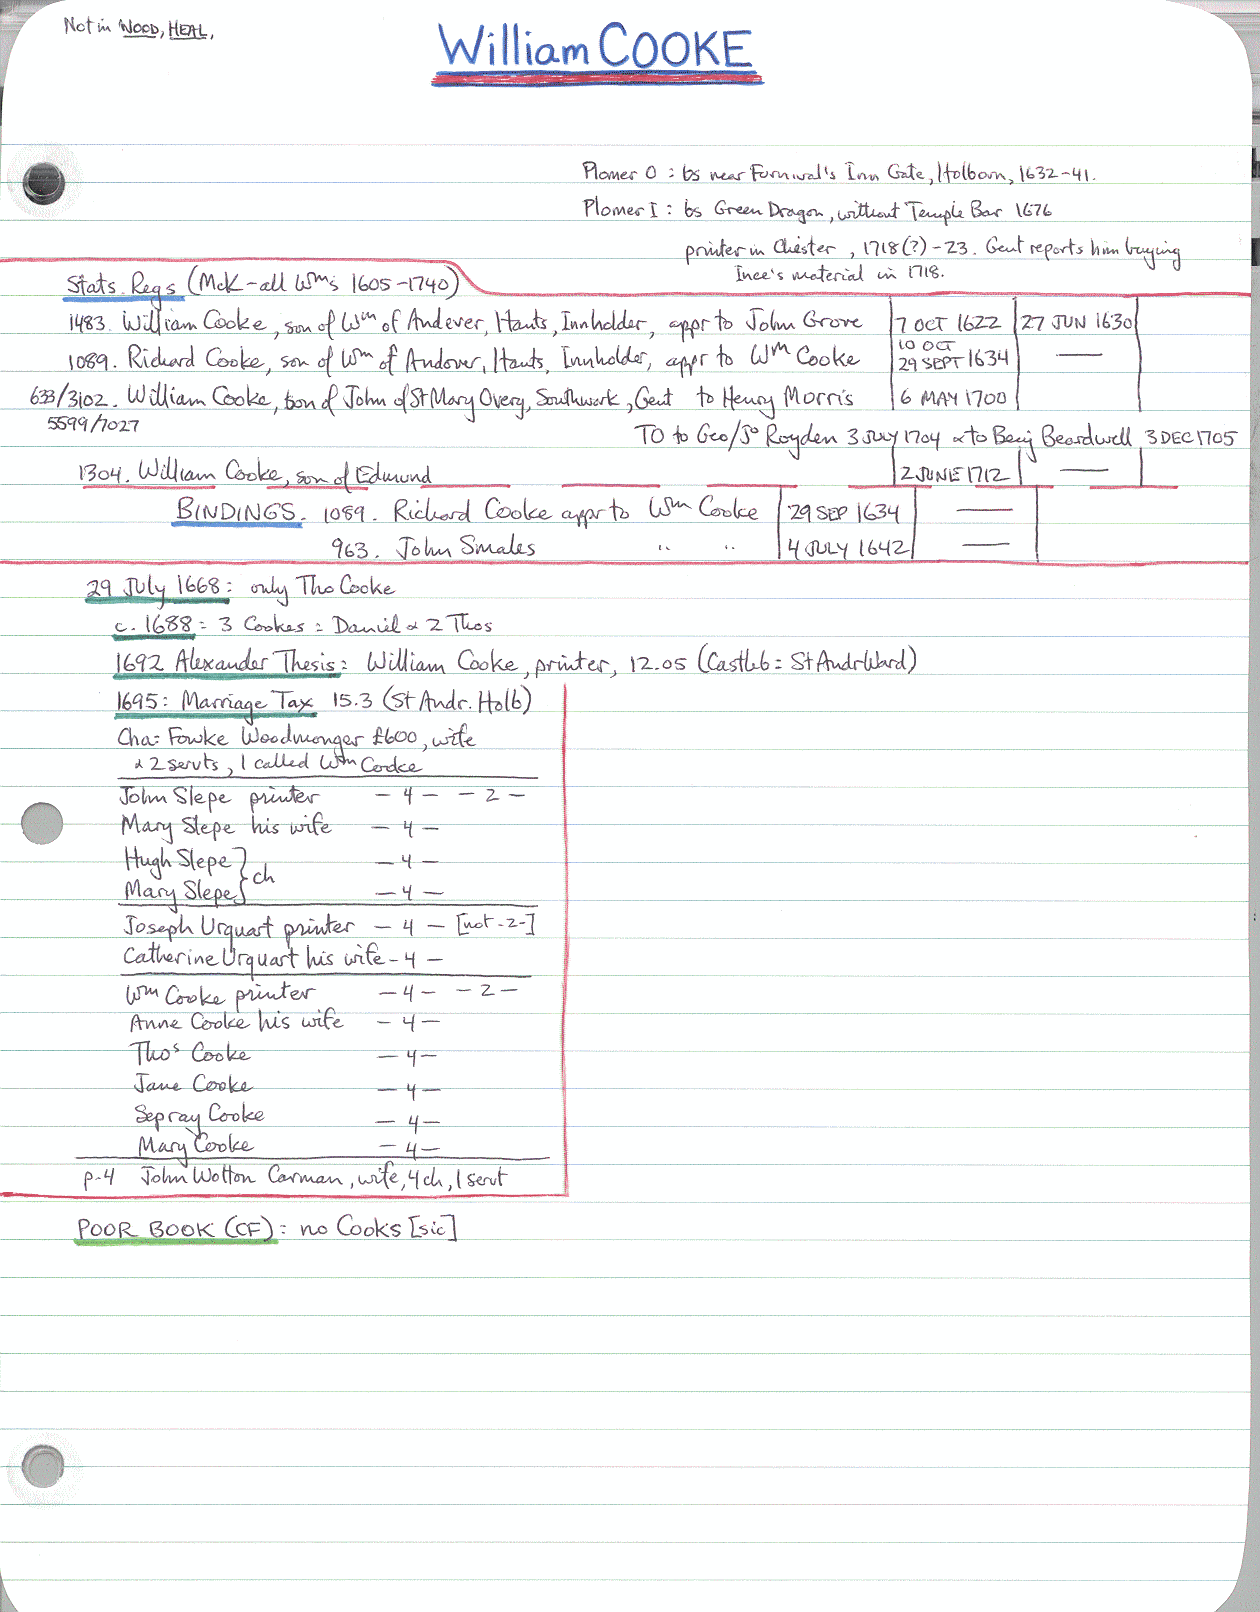 Not in WOOD, HEAL,
William COOKE
Plomer O : bs near Furnival's Inn Gate, Holborn, 1632-41.
Plomer I : bs Green Dragon, without Temple Bar 1676
printer in Chester, 1718(?) - 23. Gent reports him buying
Ince's material in 1718.
Stats. Regs (McK - all Wms 1605-1740)
1483. William Cooke, son of Wm of Andever, Hants, Innholder, appr to John Grove 7 OCT 1622 27 JUN 1630
1089. Richard Cooke, son of Wm of Andover, Hants, Innholder, appr to Wm Cooke 10 OCT 29 SEPT 1634 —
633/3102. William Cooke, son of John of St Mary Overy, Southwark, Gent to Henry Morris 6 MAY 1700
5599/7027
TO to Geo/Jo Royden 3 JULY 1704 & to Benj Beardwell 3 DEC 1705
1304. William Cooke, son of Edmund 2 JUNE 1712 —
BINDINGS. 1089. Richard Cooke appr to Wm Cooke 29 SEP 1634 —
963. John Smales " " 4 JULY 1642 —
29 July 1668: only Tho Cooke
c. 1688: 3 Cookes: Daniel & 2 Thos
1692 Alexander Thesis: William Cooke, printer, 12.05 (Castle6: St AndrWard)
1695: Marriage Tax 15.3 (St Andr. Holb)
Cha: Fowke Woodmonger £600, wife
& 2 servts, 1 called Wm Cooke
John Slepe printer - 4 - - 2 -
Mary Slepe his wife - 4 -
Hugh Slepe } ch - 4 -
Mary Slepe - 4 -
Joseph Urquart printer - 4 - [not - 2 -]
Catherine Urquart his wife - 4 -
Wm Cooke printer - 4 - - 2 -
Anne Cooke his wife - 4 -
Thos Cooke - 4 -
Jane Cooke - 4 -
Sepray Cooke - 4 -
Mary Cooke - 4 -
p.4 John Wotton Carman, wife, 4 ch, 1 servt
POOR BOOK (CF): no Cooks [sic]